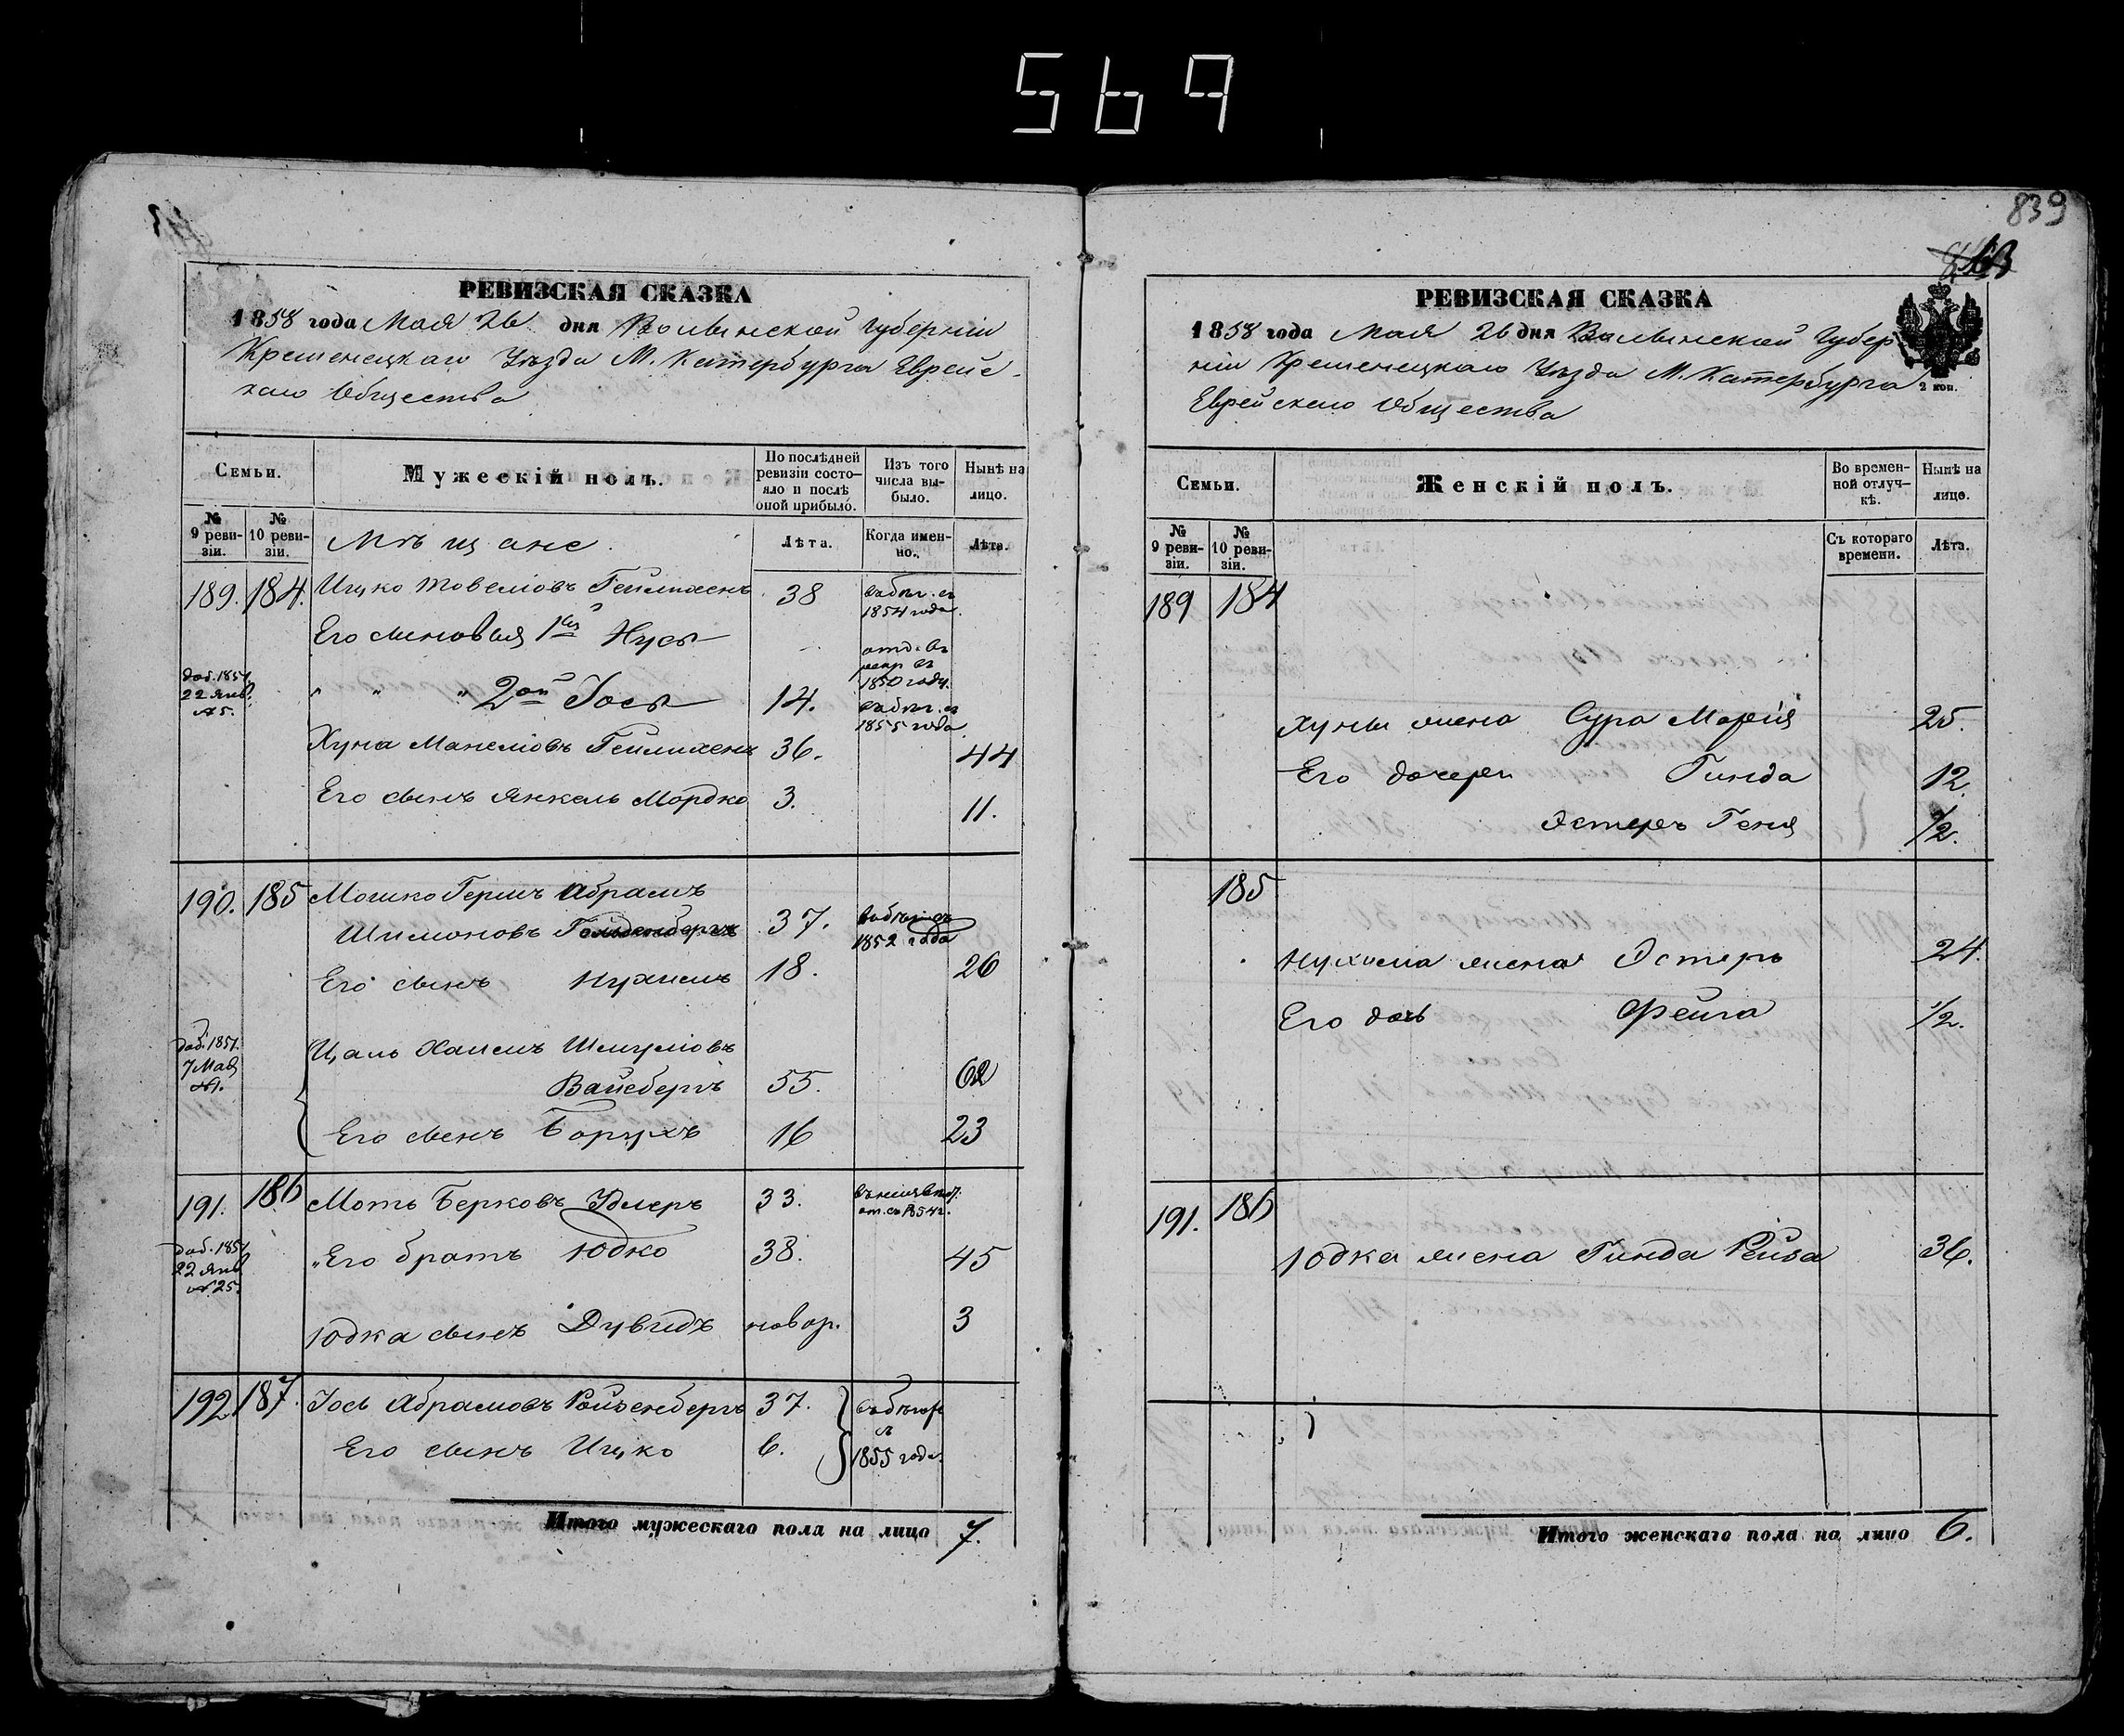 569
РЕВИЗСКАЯ СКАЗКА
1858 года Мая 26 дня Волынской Губерніи
Кременецкаго Уѣзда М. Катербурга Еврейс-
каго Общества
Семьи.
Мужескій полъ.
По послѣдней ревизіи состо-яло и послѣ оной прибыло.
Изъ того числа вы-было.
Нынѣ на лицо.
№ 9 реви-зіи.
№ 10 реви-зіи.
Мѣщане.
Лѣта.
Когда имен-но.
Лѣта.
189. 184. Ицко Товелювъ 38
1854 года.
Его сыновья 1й Нусъ
1850 году.
доб. 1851 22 Янв. № 5.
" " " 2ой Іось 14.
1855 года
Хуна Манелювъ 36. 44
Его сынъ Янкель Мордко 3. 11.
190. 185 Мошко Гершъ Абрамъ
Шимоновъ Гольденбергъ 37. 1852 года
Его сынъ Нухимъ 18. 26
доб. 1851. 7 Мая
Цаль Хаимъ Шмулювъ
Вайсбергъ 55. 62
Его сынъ Борухъ 16 23
191. 186 Моть Берковъ 33.
доб. 1851 22 Янв № 25.
"Его братъ Юдко 38. 45
Юдка сынъ Дувидъ новор. 3
192 187. Іось Абрамовъ Ройзенбергъ 37.
Его сынъ Ицко 6. 1855 года.
Итого мужескаго пола на лицо 7.
839
РЕВИЗСКАЯ СКАЗКА
1858 года Мая 26 дня Волынской Губер
ніи Кременецкаго Уѣзда М. Катербурга
2 коп.
Еврейскаго Общества
Семьи.
Женскій полъ.
Во времен-ной отлуч-кѣ.
Нынѣ на лицо.
№ 9 реви-зіи.
№ 10 реви-зіи.
Съ котораго времени.
Лѣта.
189 184
Хуны жена Сура Марія 25.
Его дочери Гинда 12.
Эстеръ Геня 1/2.
185
Нухима жена Эстеръ 24.
Его дочь Фейга 1/2.
191. 186
Юдка жена Гинда Рейза 36.
Итого женскаго пола на лицо 6.